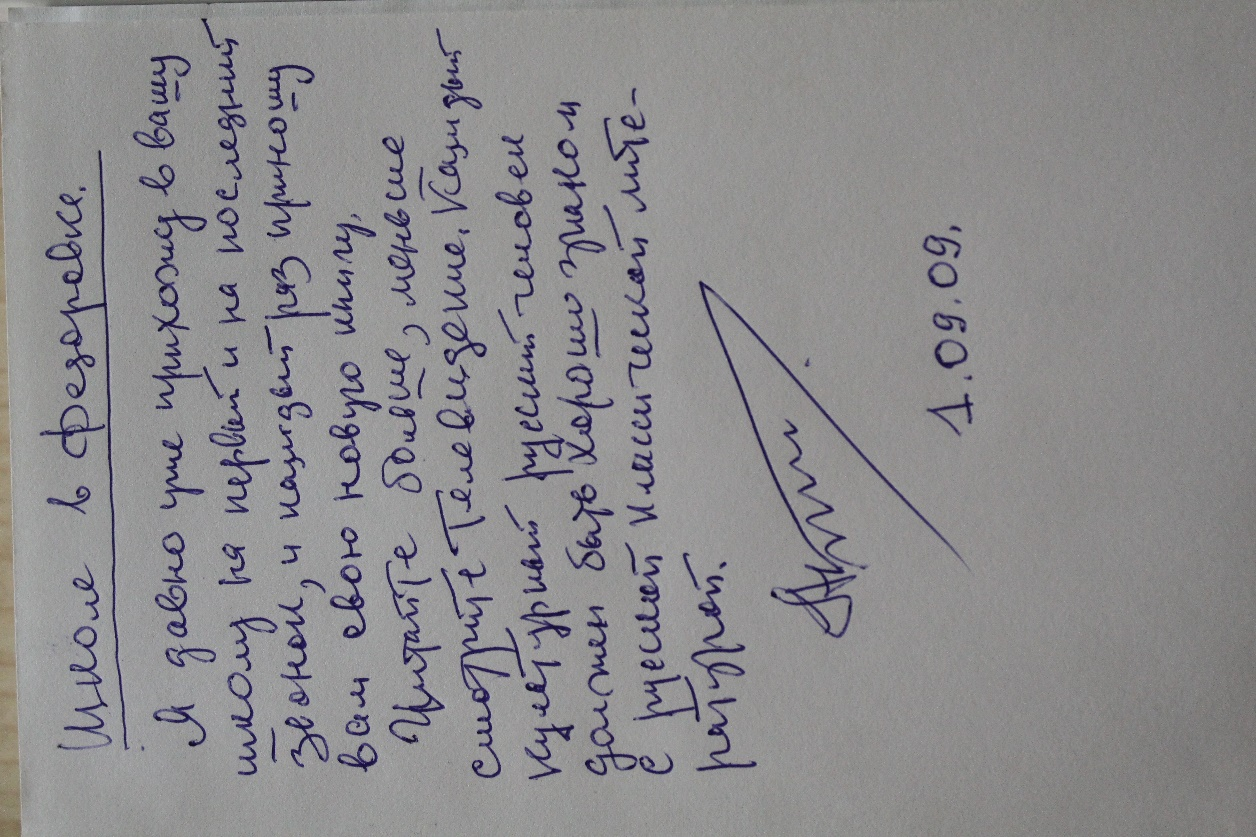 Школе в Федоровке.
Я давно уже прихожу в вашу
школу на первый и на последний
звонок, и каждый раз приношу
вам свою новую книгу.
Читайте больше, меньше
смотрите Телевидение. Каждый
культурный русский человек
должен быть хорошо знаком
с русской классической лите-
ратурой.
1.09.09.